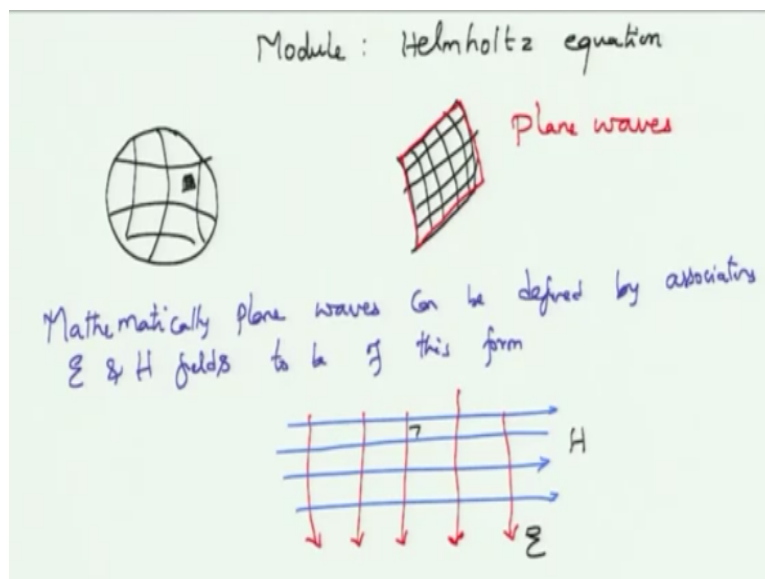 Module : Helmholtz equation
Plane waves
Mathematically plane waves can be defined by associating
E & H fields to be of this form
H
E